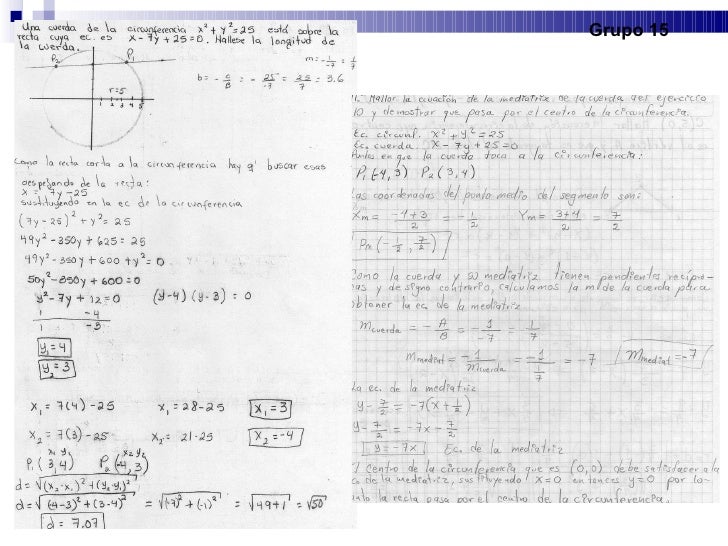 Grupo 15
Una cuerda de la circunferencia x²+y²=25 está sobre la
recta cuya ec. es x-7y+25=0. Hállese la longitud de
la cuerda.
P₂ P₁
m=-1/-7 = 1/7
b = -C/B = -25/-7 = 25/7 = 3,6
r=5
1 2 3 4 5
Como la recta corta a la circunferencia hay q' buscar esas
despejando de la recta:
x = 7y-25
sustituyendo en la ec de la circunferencia
(7y-25)² + y² = 25
49y² -350y + 625 = 25
49y² -350y + 600 + y² = 0
50y² -350y + 600 = 0
y² -7y + 12 = 0 (y-4)(y-3) = 0
1 -4
1 -3
y₁=4
y₂=3
x₁ = 7(4) -25 x₁ = 28-25 x₁=3
x₂ = 7(3) -25 x₂= 21-25 x₂=-4
x₁ y₁ x₂ y₂
P₁(3,4) P₂(-4,3)
d=√(x₂-x₁)²+(y₂-y₁)²
d=√(-4-3)²+(3-4)² = √(-7)²+(-1)² = √49+1 = √50
d = 7.07
1. Hallar la ecuación de la mediatriz de la cuerda del ejercicio
10 y demostrar que pasa por el centro de la circunferencia.
Ec. circunf. x²+y²=25
Ec. cuerda. x-7y+25=0
Puntos en que la cuerda toca a la circunferencia:
P₁(-4,3) P₂(3,4)
Las coordenadas del punto medio del segmento son:
Xm = -4+3/2 = -1/2 Ym = 3+4/2 = 7/2
Pm(-1/2, 7/2)
Como la cuerda y su mediatriz tienen pendientes recipro-
cas y de signo contrario, calculamos la m de la cuerda para
obtener la ec. de la mediatriz
Mcuerda = -A/B = -1/-7 = 1/7
Mmediat = -1/Mcuerda = -1/(1/7) = -7 Mmediat=-7
La ec. de la mediatriz
y-7/2 = -7(x+1/2)
y-7/2 = -7x-7/2
y=-7x Ec. de la mediatriz
El centro de la circunferencia que es (0,0) debe satisfacer a la
ec. de la mediatriz, sustituyendo x=0 entonces y=0 por lo
tanto la recta pasa por el centro de la circunferencia.